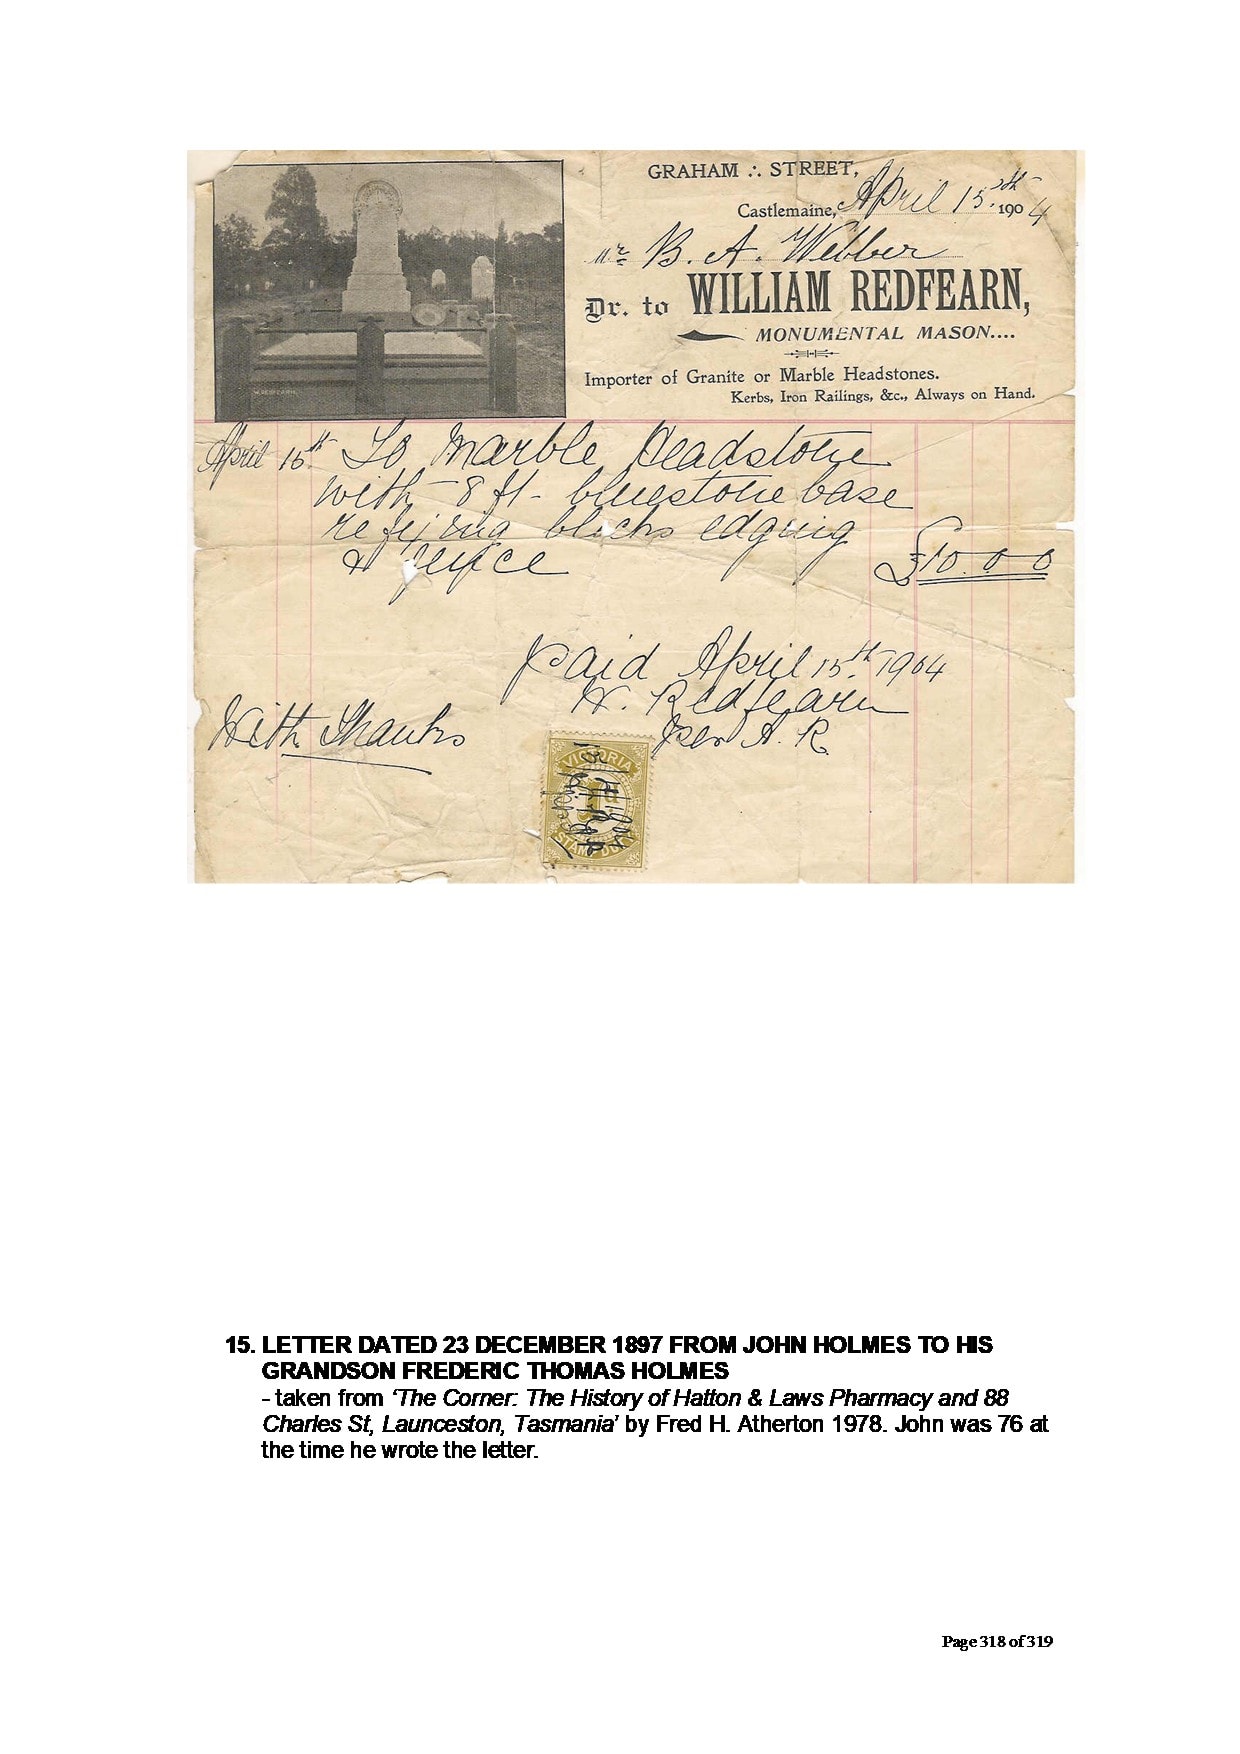 GRAHAM ∴ STREET,
Castlemaine, April 15th 1904
Mr B. A. Webber
Dr. to WILLIAM REDFEARN,
MONUMENTAL MASON....
Importer of Granite or Marble Headstones.
Kerbs, Iron Railings, &c., Always on Hand.
W. REDFEARN
April 15th To Marble Headstone
with 8 ft bluestone base
refixing blocks edging
& fence £10.0.0
paid April 15th 1904
W. Redfearn
With Thanks per A. R.
VICTORIA
STAMP DUTY
15. LETTER DATED 23 DECEMBER 1897 FROM JOHN HOLMES TO HIS
GRANDSON FREDERIC THOMAS HOLMES
- taken from ‘The Corner: The History of Hatton & Laws Pharmacy and 88
Charles St, Launceston, Tasmania’ by Fred H. Atherton 1978. John was 76 at
the time he wrote the letter.
Page 318 of 319